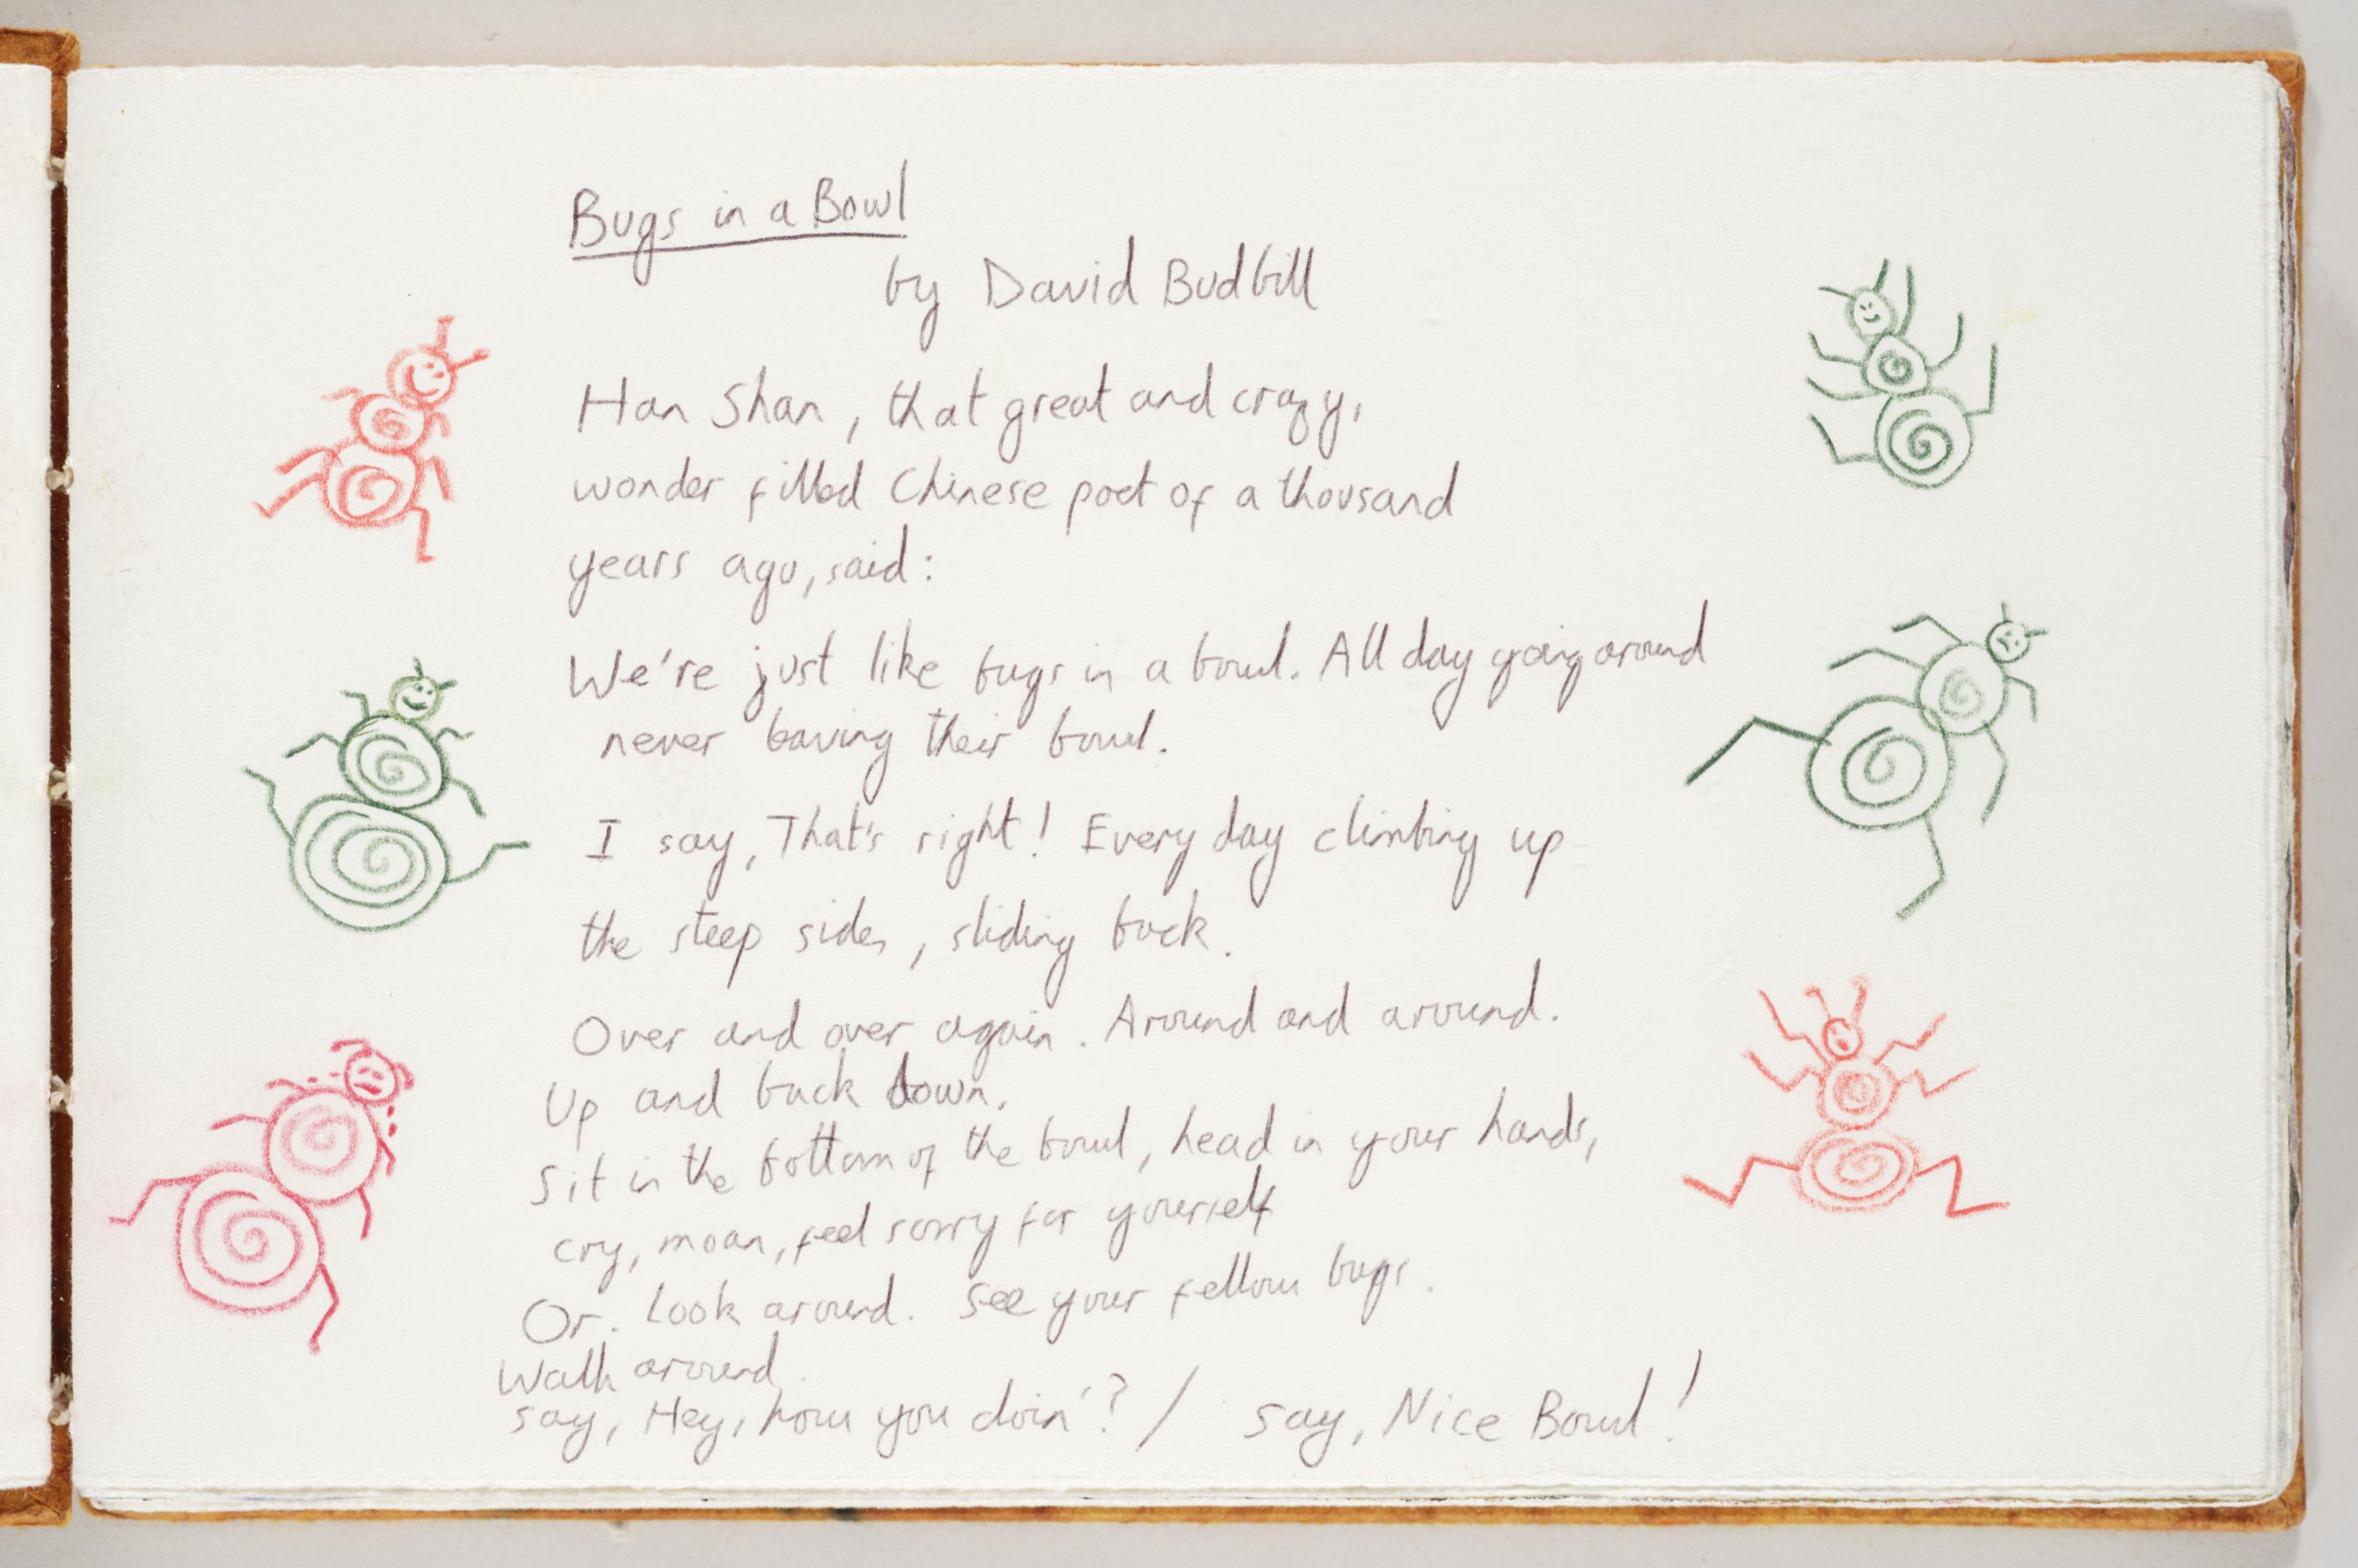 Bugs in a Bowl
by David Budbill
Han Shan, that great and crazy,
wonder filled Chinese poet of a thousand
years ago, said:
We're just like bugs in a bowl. All day going around
never leaving their bowl.
I say, That's right! Every day climbing up
the steep sides, sliding back.
Over and over again. Around and around.
Up and back down.
Sit in the bottom of the bowl, head in your hands,
cry, moan, feel sorry for yourself
Or. Look around. See your fellow bugs.
Walk around.
say, Hey, how you doin'? / say, Nice Bowl!